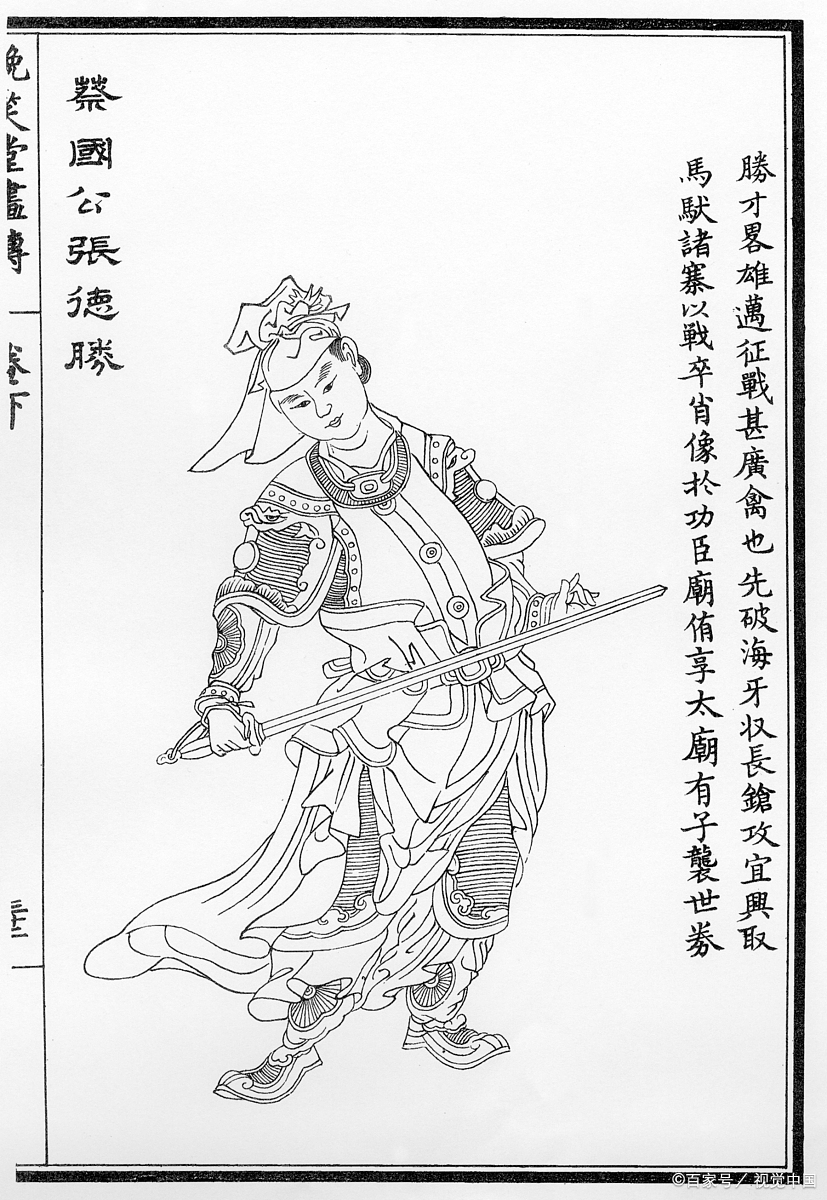 勝才畧雄邁征戰甚廣禽也先破海牙収長鎗攻宜興取
馬馱諸寨以戰卒肖像於功臣廟侑享太廟有子襲世券
蔡國公張德勝
晚笑堂畫傳
卷下
三十三
©百家号／视觉中国